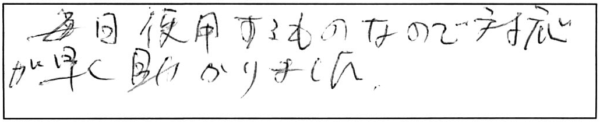 毎日使用するものなので対応
が早く助かりました。